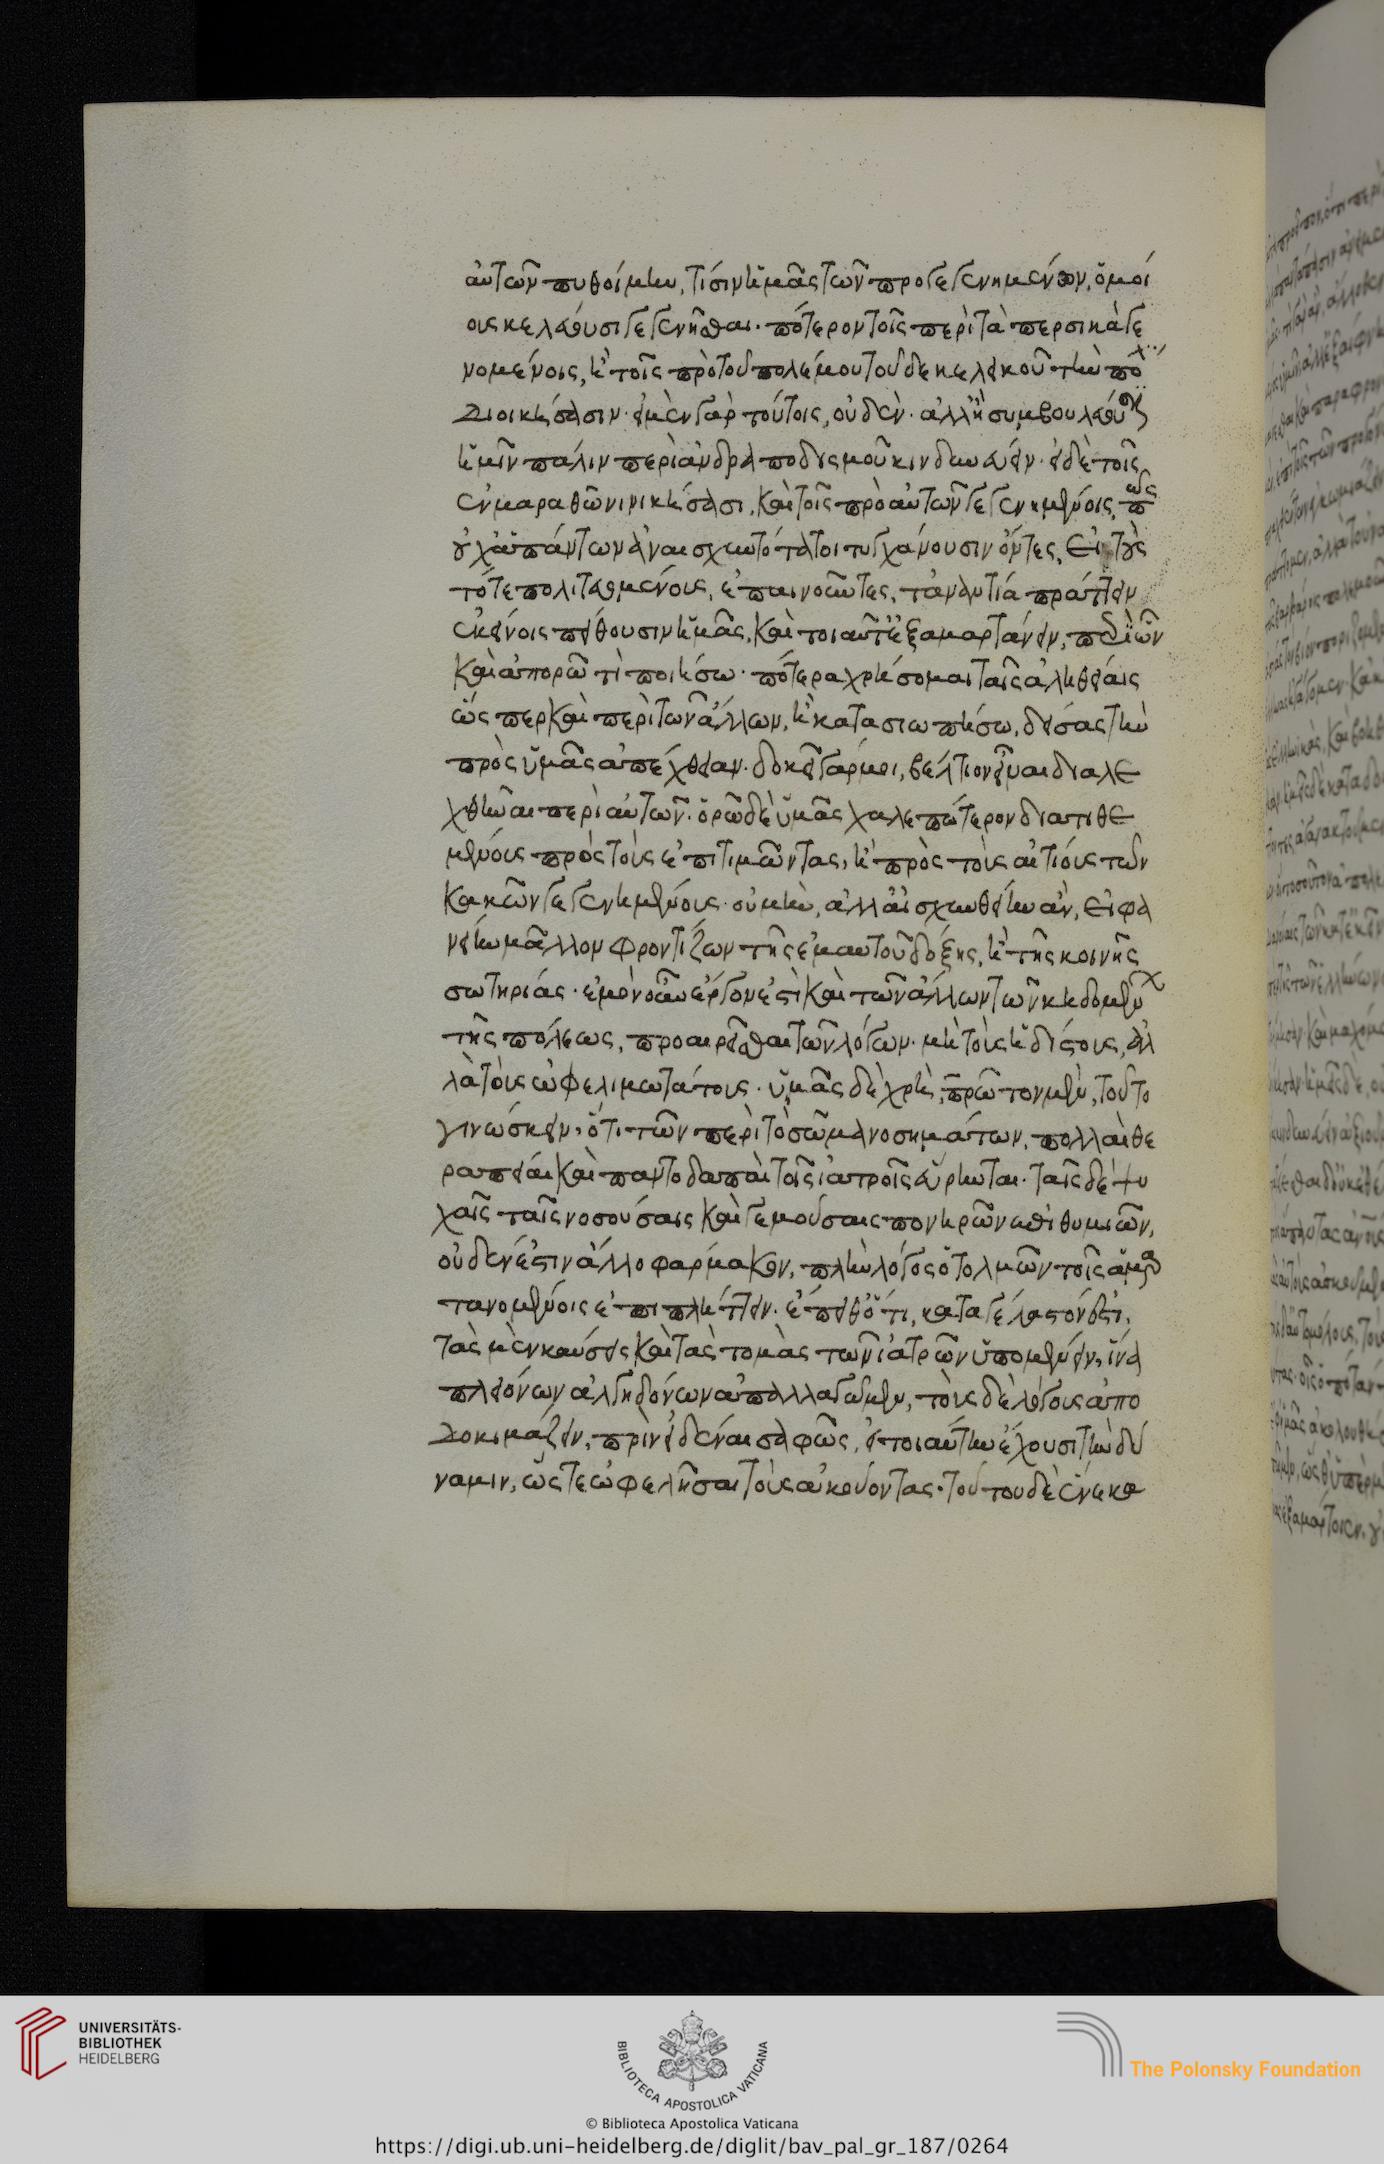 αὐτῶν πυθοίμην, τίσιν ἡμᾶς τῶν προγεγενημένων, ὁμοί
οις κελεύουσι γεγενῆσθαι. πότερον τοῖς περὶ τὰ περσικὰ γε
νομένοις, ἢ τοῖς πρὸ τοῦ πολέμου τοῦ δεκελεικοῦ τὴν πόλ
διοικήσασιν. εἰ μὲν γὰρ τούτοις, οὐδὲν. ἀλλ' ἢ συμβουλεύουσιν
ἡμῖν πάλιν περὶ ἀνδραποδισμοῦ κινδυνεύειν. εἰ δὲ τοῖς
ἐν μαραθῶνι νικήσασι, καὶ τοῖς πρὸ αὐτῶν γεγενημένοις, πῶς
οὐχ ἁπάντων ἀναισχυντότατοι τυγχάνουσιν ὄντες, εἰ τοὺς
τότε πολιτευομένοις, ἐπαινοῦντες, τἀναντία πράττειν
ἐκείνοις πείθουσιν ἡμᾶς, καὶ τοιαῦτ' ἐξαμαρτάνειν, περὶ ὧν
καὶ ἀπορῶ τί ποιήσω. πότερα χρήσομαι ταῖς ἀληθείαις
ὥς περ καὶ περὶ τῶν ἄλλων, ἢ κατασιωπήσω, δείσας τὴν
πρὸς ὑμᾶς ἀπέχθειαν. δοκεῖ γάρ μοι, βέλτιον εἶναι διαλε
χθῆναι περὶ αὐτῶν. ὁρῶ δὲ ὑμᾶς χαλεπώτερον διατιθε
μένους πρὸς τοὺς ἐπιτιμῶντας, ἢ πρὸς τοὺς αἰτίους τῶν
κακῶν γεγενημένους. οὐ μὴν, ἀλλ' αἰσχυνθείην ἂν, εἰ φα
νείην μᾶλλον φροντίζων τῆς ἐμαυτοῦ δόξης, ἢ τῆς κοινῆς
σωτηρίας. ἐμὸν οὖν ἔργον ἐστὶ καὶ τῶν ἄλλων τῶν κηδομένων
τῆς πόλεως, προαιρεῖσθαι τῶν λόγων. μὴ τοὺς ἡδίστους, ἀλ
λὰ τοὺς ὠφελιμωτάτους. ὑμᾶς δὲ χρὴ, πρῶτον μὲν, τοῦτο
γινώσκειν, ὅτι τῶν περὶ τὸ σῶμα νοσημάτων, πολλαὶ θε
ραπεῖαι καὶ παντοδαπαὶ τοῖς ἰατροῖς εὕρηνται. ταῖς δὲ ψυ
χαῖς ταῖς νοσούσαις καὶ γεμούσαις πονηρῶν ἐπιθυμιῶν,
οὐδὲν ἐστιν ἄλλο φάρμακον, πλὴν λόγος ὁ τολμῶν τοῖς ἁμαρ
τανομένοις ἐπιπλήττειν. ἔπειθ' ὅτι, καταγέλαστόν ἐστι,
τὰς μὲν καύσεις καὶ τὰς τομὰς τῶν ἰατρῶν ὑπομένειν, ἵνα
πλειόνων ἀλγηδόνων ἀπαλλαγῶμεν, τοὺς δὲ λόγους ἀπο
δοκιμάζειν, πρὶν εἰδέναι σαφῶς, εἰ τοιαύτην ἔχουσι τὴν δύ
ναμιν, ὥστε ὠφελῆσαι τοὺς ἀκούοντας. τούτου δὲ ἕνεκα
UNIVERSITÄTS-
BIBLIOTHEK
HEIDELBERG
BIBLIOTECA APOSTOLICA VATICANA
The Polonsky Foundation
© Biblioteca Apostolica Vaticana
https://digi.ub.uni-heidelberg.de/diglit/bav_pal_gr_187/0264